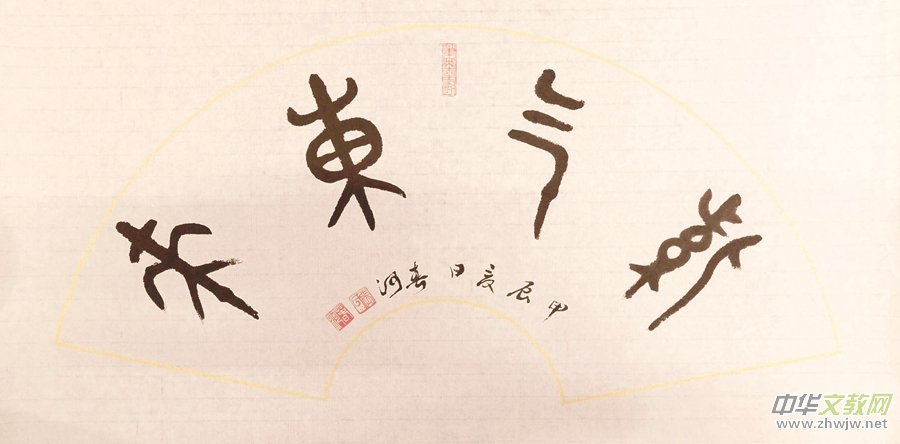 紫气東来
甲辰夏日春河
中华文教网
www.zhwjw.net